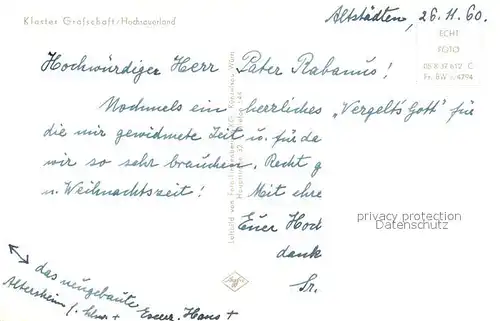 Kloster Grafschaft/Hochsauerland
Altstädten, 26.11.60.
ECHT
FOTO
Hochwürdiger Herr Pater Rabanus!
Nochmals ein herrliches „Vergelt's Gott" für
die mir gewidmete Zeit u. für da
wir so sehr brauchen. Recht g
u. Weihnachtszeit! Mit ehre
Euer Hoch
dank
Sr.
privacy protection
Datenschutz
das neugebaute
Altersheim
Agfa